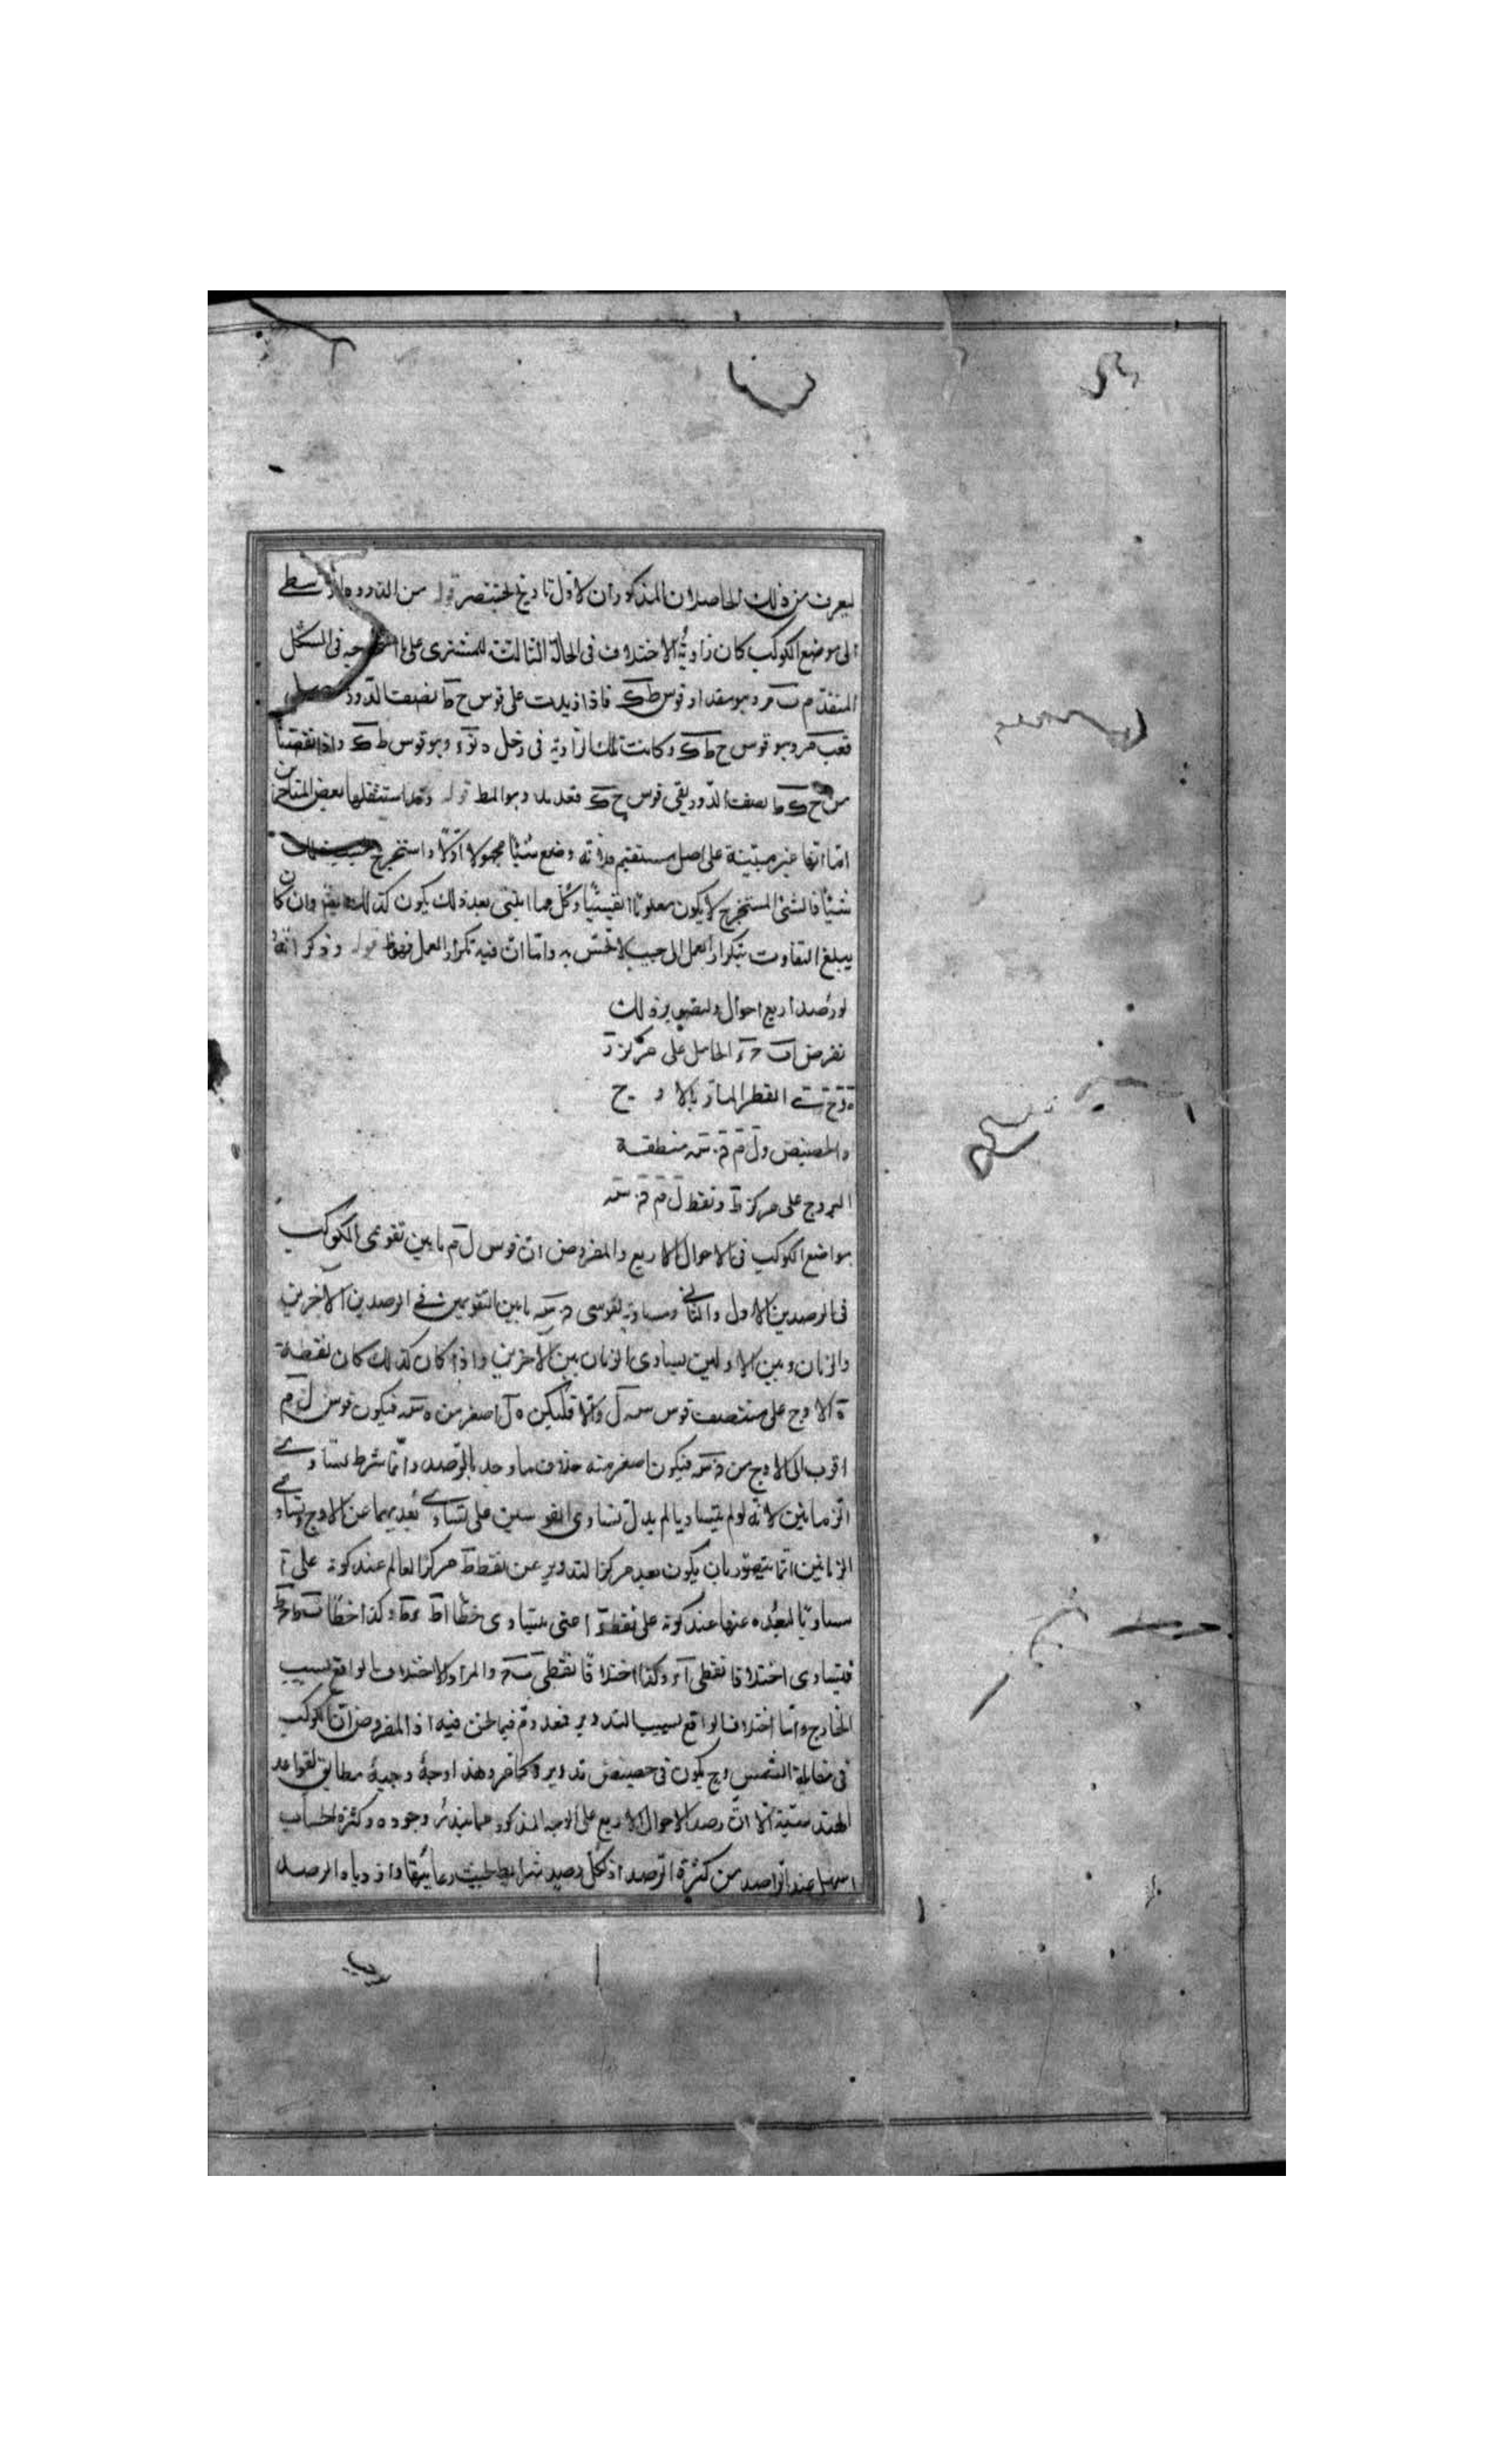 ليعرف من ذلك الحاصلان المذكوران لاول تاريخ بختنصر قوله من الذروة الوسطى
الى موضع الكوكب كان زاوية الاختلاف فى الحالة الثالثة للمشترى على فى الشكل
المتقدم وهو مقدار قوس طك فاذا زيدت على قوس ح ط نصف الدور
وهو قوس ح ط ك وكانت تلك الزاوية فى زحل وهو قوس ط ك واذا نقصنا
من ح ك نصف الدور بقى قوس ح ك وهو المط قوله وقد استثقلها بعض المتاخرين
اما انها غير مبتنية على اصل مستقيم فلانه وضع شيئا مجهولا اولا واستخرج
شيئا فالشئ المستخرج لا يكون معلوما يقينيا وكل مما ابتنى بعد ذلك يكون كذلك وان كان
يبلغ التفاوت بتكرار العمل الى حيث لا تحس به واما ان فيه تكرار العمل فهو ظ قوله وذكر انه
لو رصد اربع احوال ولتصوير ذلك
نفرض الحامل على مركز ز
القطر المار بالاوج
والحضيض و ل م ن س منطقة
البروج على مركز ط ونقط ل م ن س
مواضع الكوكب فى الاحوال الاربع والمفروض ان قوس ل م ما بين تقويمى الكوكب
فى الرصدين الاول والثانى ومساوية لقوس ن س ما بين التقويمين فى الرصدين الآخرين
والزمان بين الاولين يساوى الزمان بين الآخرين واذا كان كذلك كان نقطة
ه الاوج على منتصف قوس س ل والا فليكن ه ل اصغر من ه س فيكون قوس ل م
اقرب الى الاوج من ن س فيكون اصغر منه خلاف ما وجد بالرصد وانما شرط تساوى
الزمانين لانه لو لم يتساويا لم يدل تساوى القوسين على تساوى بعديهما عن الاوج وتساوى
الزمانين انما يتصور بان يكون بعد مركز التدوير عن نقطة ط مركز العالم عند كونه على ا
مساويا لبعده عنها عند كونه على نقطة ء اعنى يتساوى خطا اط ء ط وكذا خطا ب ط ج ط
فيتساوى اختلافا نقطتى ا ء وكذا اختلافا نقطتى ب ج والمراد الاختلاف الواقع بسبب
الخارج واما اختلاف الواقع بسبب التدوير فمعدوم فيما نحن فيه اذ المفروض ان الكوكب
فى مقابلة الشمس وح يكون فى حضيض تدويره كما مر وهذا وجه وجيه مطابق لقواعد
الهندسية الا ان رصد الاحوال الاربع على الوجه المذكور مما يندر وجوده وكثرة الحساب
اسهل عند الراصد من كثرة الرصد اذ لكل رصد شرائط يجب رعايتها وازدياد الرصد